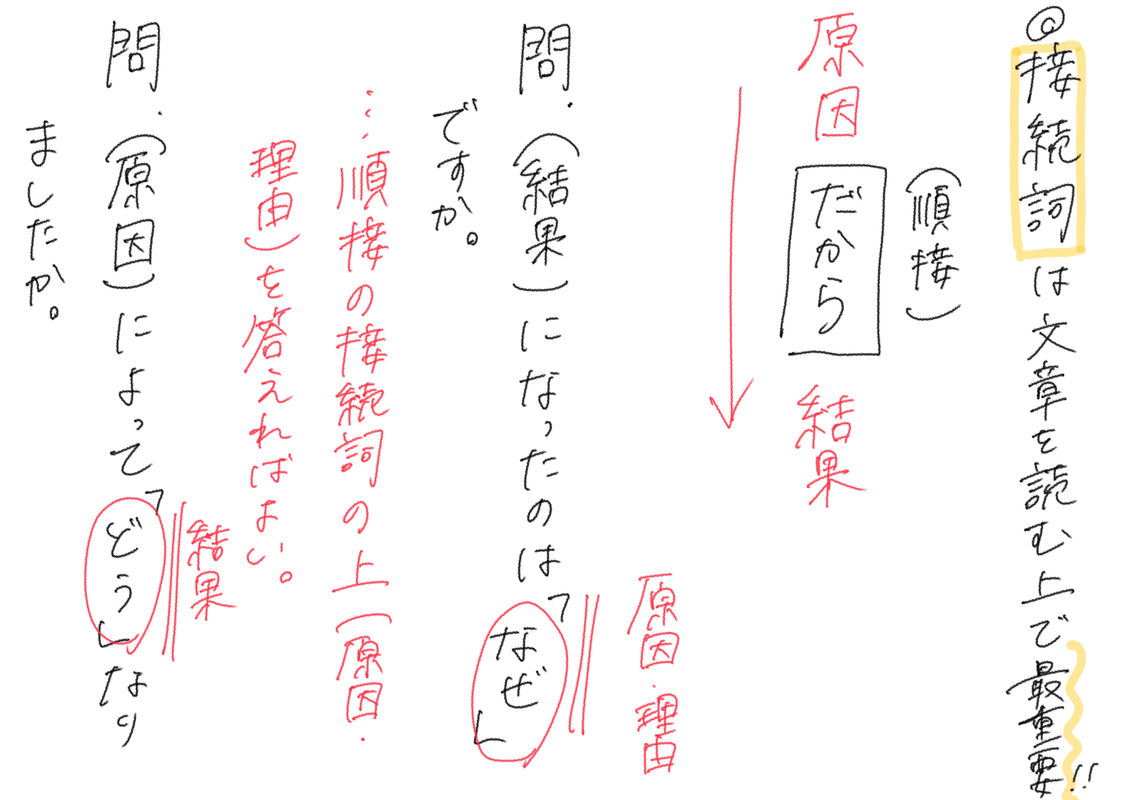 ◎接続詞は文章を読む上で最重要!!
(順接)
原因 だから 結果
問.(結果)になったのは「なぜ」
ですか。
原因・理由
…順接の接続詞の上(原因・
理由)を答えればよい。
問.(原因)によって「どう」なり
ましたか。
結果